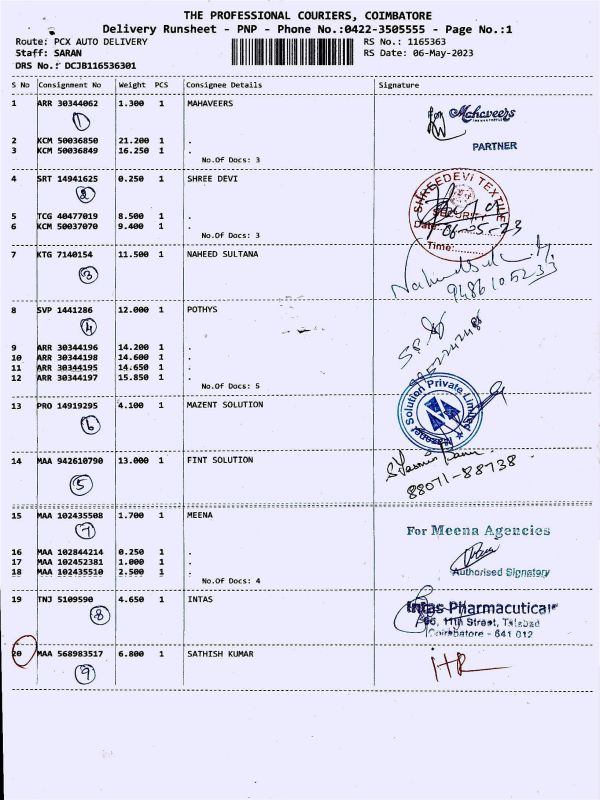 THE PROFESSIONAL COURIERS, COIMBATORE
Delivery Runsheet - PNP - Phone No.:0422-3505555 - Page No.:1
Route: PCX AUTO DELIVERY RS No.: 1165363
Staff: SARAN RS Date: 06-May-2023
DRS No.: DCJB116536301
S No Consignment No Weight PCS Consignee Details Signature
1 ARR 30344062 1.300 1 MAHAVEERS
1
for Mahaveers
PARTNER
2 KCM 50036850 21.200 1 .
3 KCM 50036849 16.250 1 .
No.Of Docs: 3
4 SRT 14941625 0.250 1 SHREE DEVI
2
SHREEDEVI TEXTILE
SECURITY
Date:
Time:
5 TCG 40477019 8.500 1 .
6 KCM 50037070 9.400 1 .
No.Of Docs: 3
7 KTG 7140154 11.500 1 NAHEED SULTANA
3
9486105233
8 SVP 1441286 12.000 1 POTHYS
4
9 ARR 30344196 14.200 1 .
10 ARR 30344198 14.600 1 .
11 ARR 30344195 14.650 1 .
12 ARR 30344197 15.850 1 .
No.Of Docs: 5
13 PRO 14919295 4.100 1 MAZENT SOLUTION
6
Mazenet Solution Private Limited
14 MAA 942610790 13.000 1 FINT SOLUTION
5
88071-88738
15 MAA 102435508 1.700 1 MEENA
7
For Meena Agencies
16 MAA 102844214 0.250 1 .
17 MAA 102452381 1.000 1 .
18 MAA 102435510 2.500 1 .
No.Of Docs: 4
Authorised Signatory
19 TNJ 5109590 4.650 1 INTAS
8
Intas Pharmaceutical
11th Street, Tatabad
Coimbatore - 641 012
20 MAA 568983517 6.800 1 SATHISH KUMAR
9